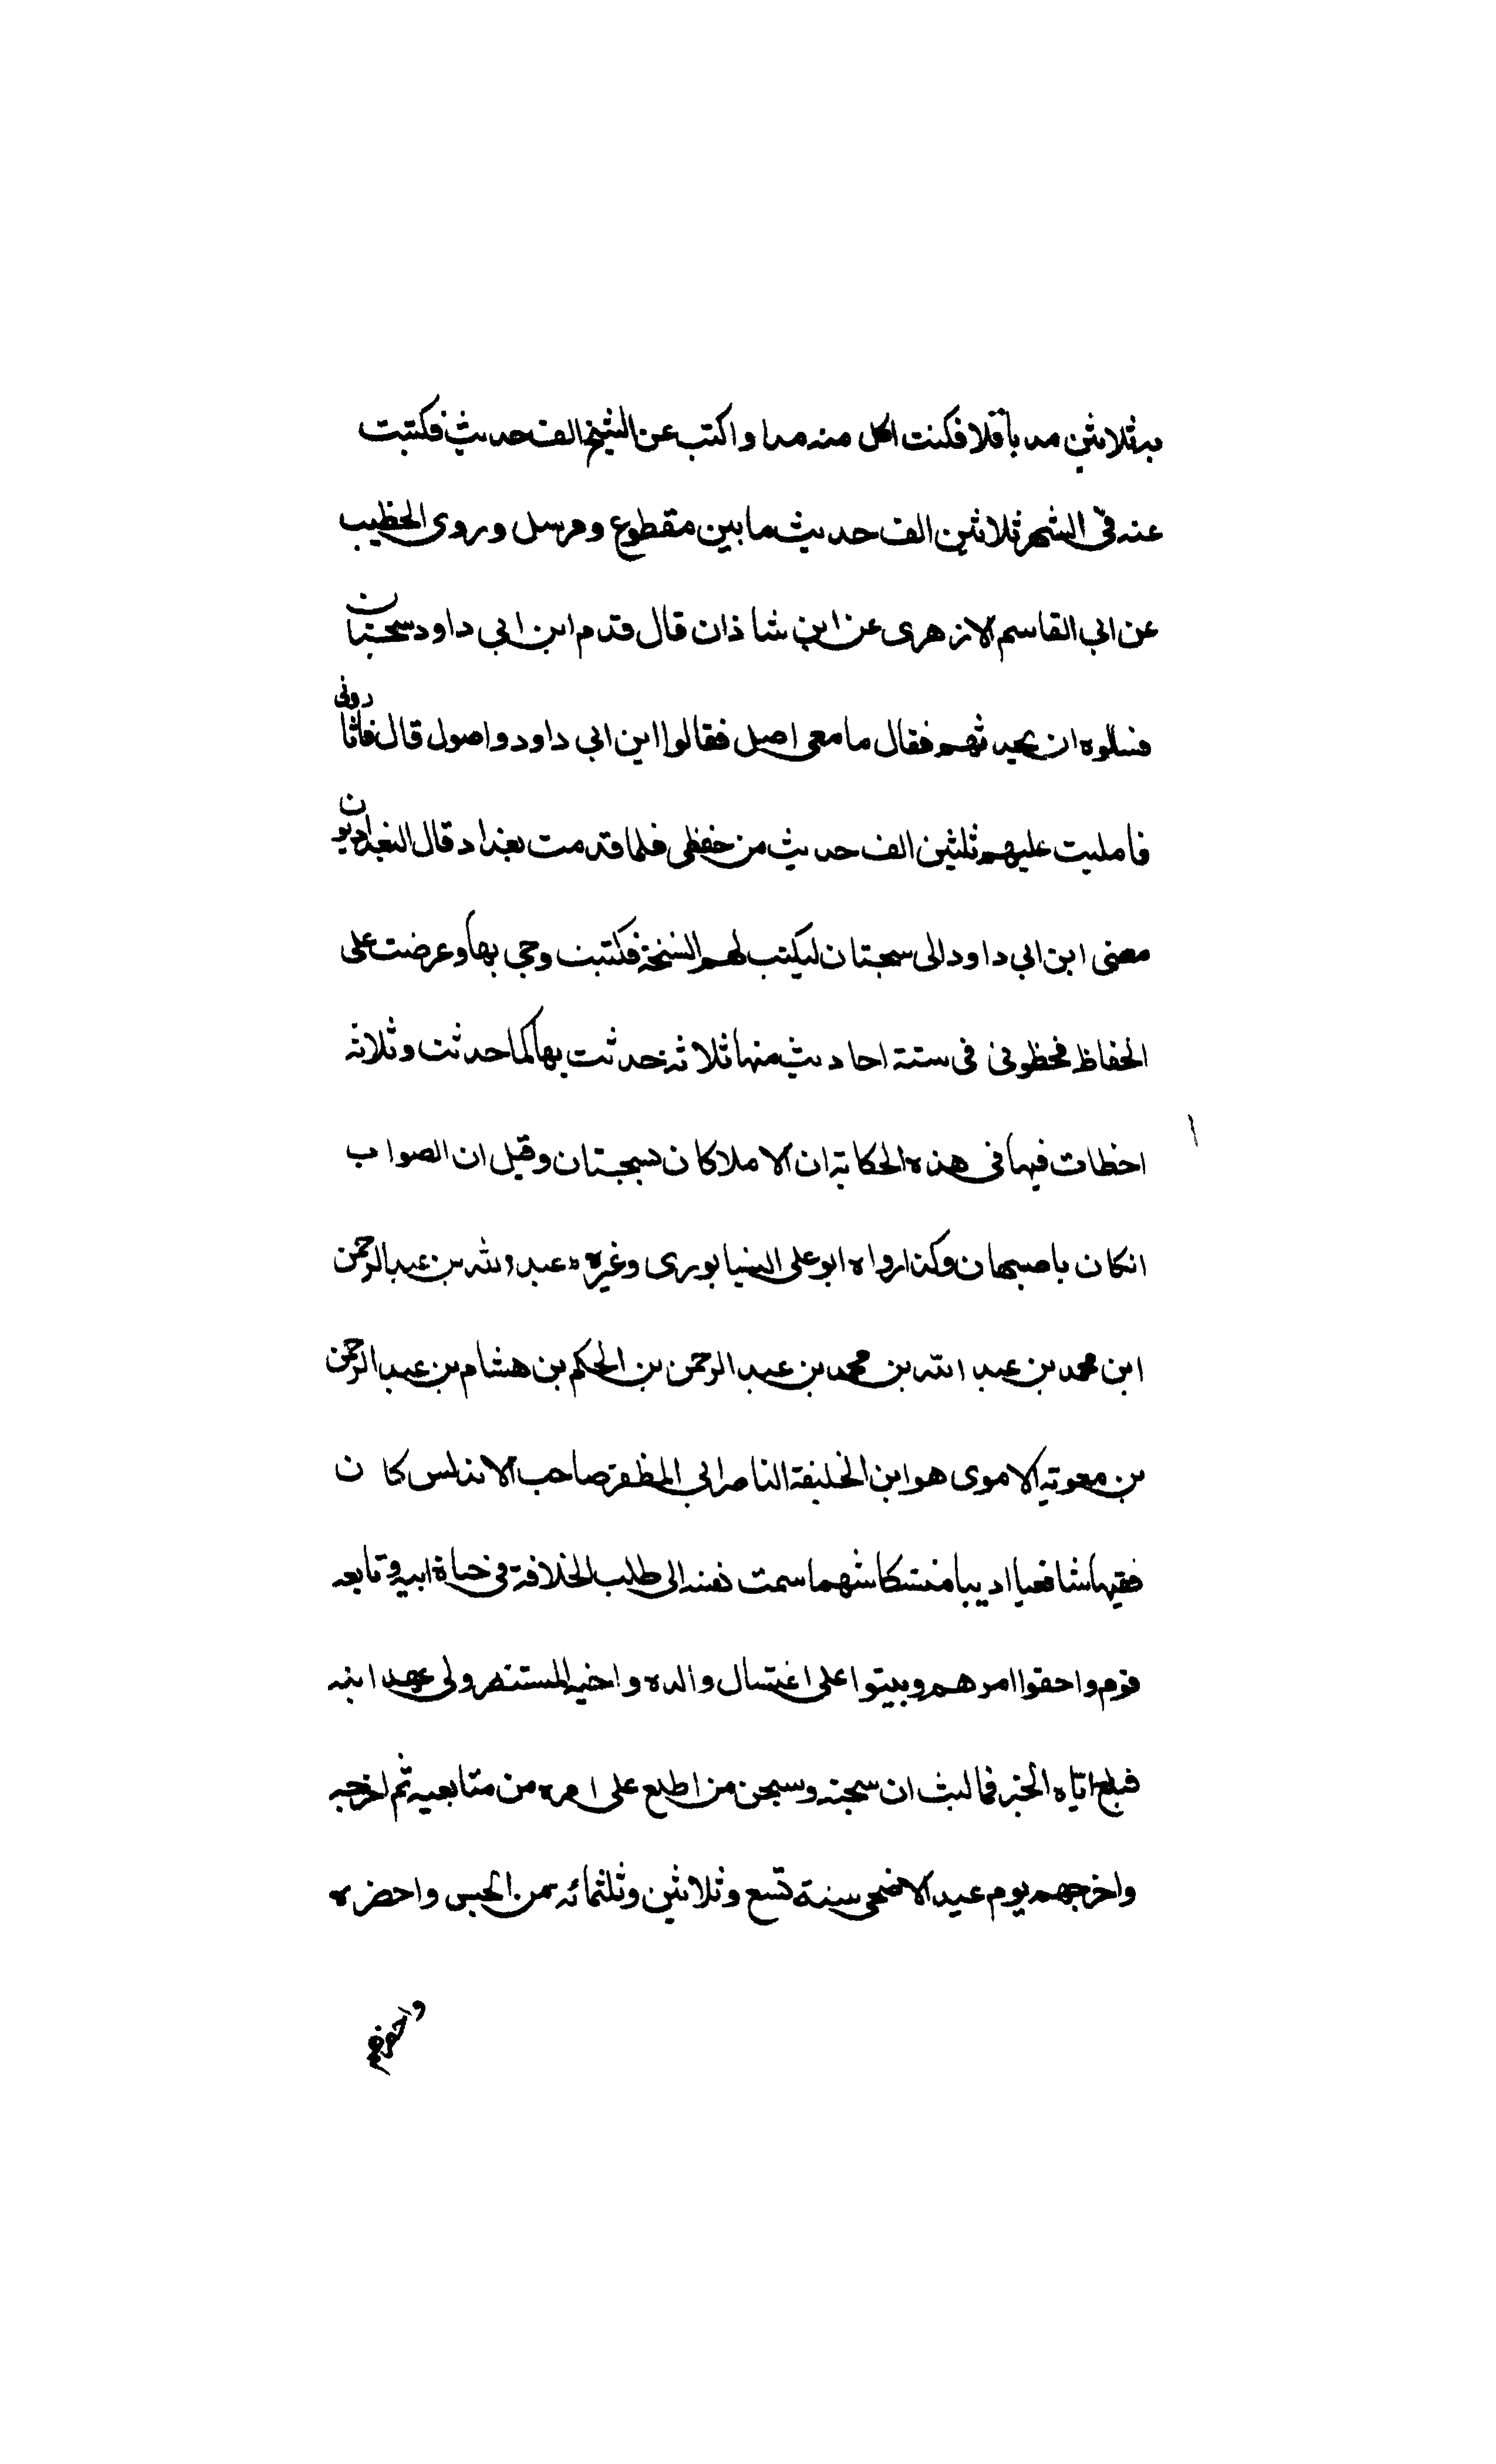 به ثلاثين مد باقلا فكنت اكل منه مدا واكتب عن الشيخ الف حديث فكتبت
عنه في الشهر ثلاثين الف حديث ما بين مقطوع ومرسل وروى الخطيب
عن ابي القاسم الازهرى عن ابن شاذان قال قدم ابن ابي داود سجستان
فسلوه ان يحدثهم فقال ما معى اصل فقالوا ابن ابى داود واصول قال فاثارونى
فامليت عليهم ثلثين الف حديث من حفظى فلما قدمت بغداد قال البغداديون
مضى ابن ابي داود الى سجستان ليكتب لهم النسخة فكتبت وجى بها وعرضت على
الحفاظ فخطونى فى ستة احاديث منها ثلاثة حدثت بها كما حدثت وثلاثة
اخطات فيها فى هذه الحكاية ان الاملا كان بسجستان وقيل ان الصواب
انكان باصبهان وكذا رواه ابو على النيسابورى وغيره عبد الله بن عبد الرحمن
ابن محمد بن عبد الله بن محمد بن عبد الرحمن بن الحكم بن هشام بن عبد الرحمن
بن معوية الاموى هو ابن الخليفة الناصر ابى المظفر صاحب الاندلس كان
فقيها شافعيا اديبا متنسكا شهما سمت نفسه الى طلب الخلافة فى حياة ابيه وتابعه
قوم واحقوا امرهم وبيتوا على اغتيال والده واخيه المستنصر ولى عهد ابيه
فبلغ اتاه الخبر فما لبث ان سجنه وسجن من اطلع على امره من متابعيه ثم اخرجه
واخرجهم يوم عيد الاضحى سنة تسع وثلاثين وثلثمائه من الحبس واحضره
واحضرهم